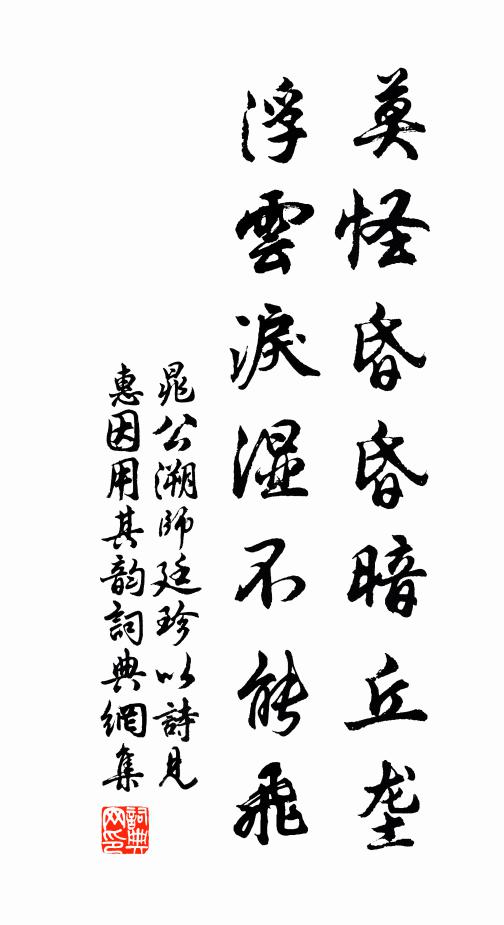 莫怪昏昏暗丘垄
浮雲淚湿不能飛
晁公溯師廷珍以詩見
惠因用其韵詞典網集
詞典
网印